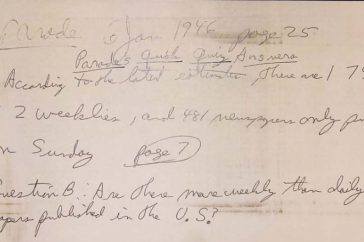 Parade 6 Jan 1946 page 25
Parade's Quiz Answers
According to the latest estimates, there are 1 7
2 weeklies, and 481 newspapers only pu
on Sunday page 7
Question B.: Are there more weekly than daily
papers published in the U.S.?